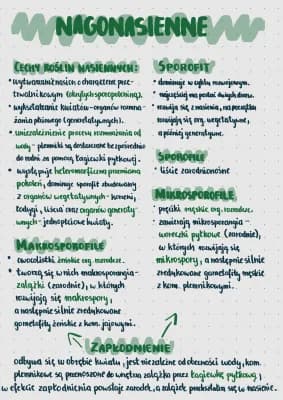 NAGONASIENNE
CECHY ROŚLIN NASIENNYCH:
• wytwarzanie nasion o charakterze prze-
trwalnikowym (okrytych sporopoleniną).
• wykształcanie kwiatów-organów rozmna-
żania płciowego (generatywnych).
• uniezależnienie procesu rozmnażania od
wody - plemniki są dostarczane bezpośrednio
do rodni za pomocą łagiewki pyłkowej.
• występuje heteromorficzna przemiana
pokoleń, dominuje sporofit zbudowany
z organów wegetatywnych - korzeni,
łodygi, liścia oraz organów generaty-
wnych - jednopłciowe kwiaty.
MAKROSPOROFILE
• owocolistki żeńskie org. rozrodcze.
• tworzą się w nich makrosporangia -
zalążki (zarodnie), w których
rozwijają się makrospory,
a następnie silnie zredukowane
gametofity żeńskie z kom. jajowymi.
SPOROFIT
• dominuje w cyklu rozwojowym.
• najczęściej ma postać dwóch
• rozwija się z nasienia, na początku
rozwijają się org. wegetatywne,
a później generatywne.
SPOROFILE
• liście zarodnionośne
MIKROSPOROFILE
• pręciki męskie org. rozrodcze.
• zawierają mikrosporangia -
woreczki pyłkowe (zarodnie),
w których rozwijają się
mikrospory, a następnie silnie
zredukowane gametofity męskie
z kom. plemnikowymi.
ZAPŁODNIENIE
odbywa się w obrębie kwiatu, jest niezależne od obecności wody, kom.
plemnikowe są przenoszone do wnętrza zalążka przez łagiewkę pyłkową,
w efekcie zapłodnienia powstaje zarodek, a zalążek przekształca się w nasienie.